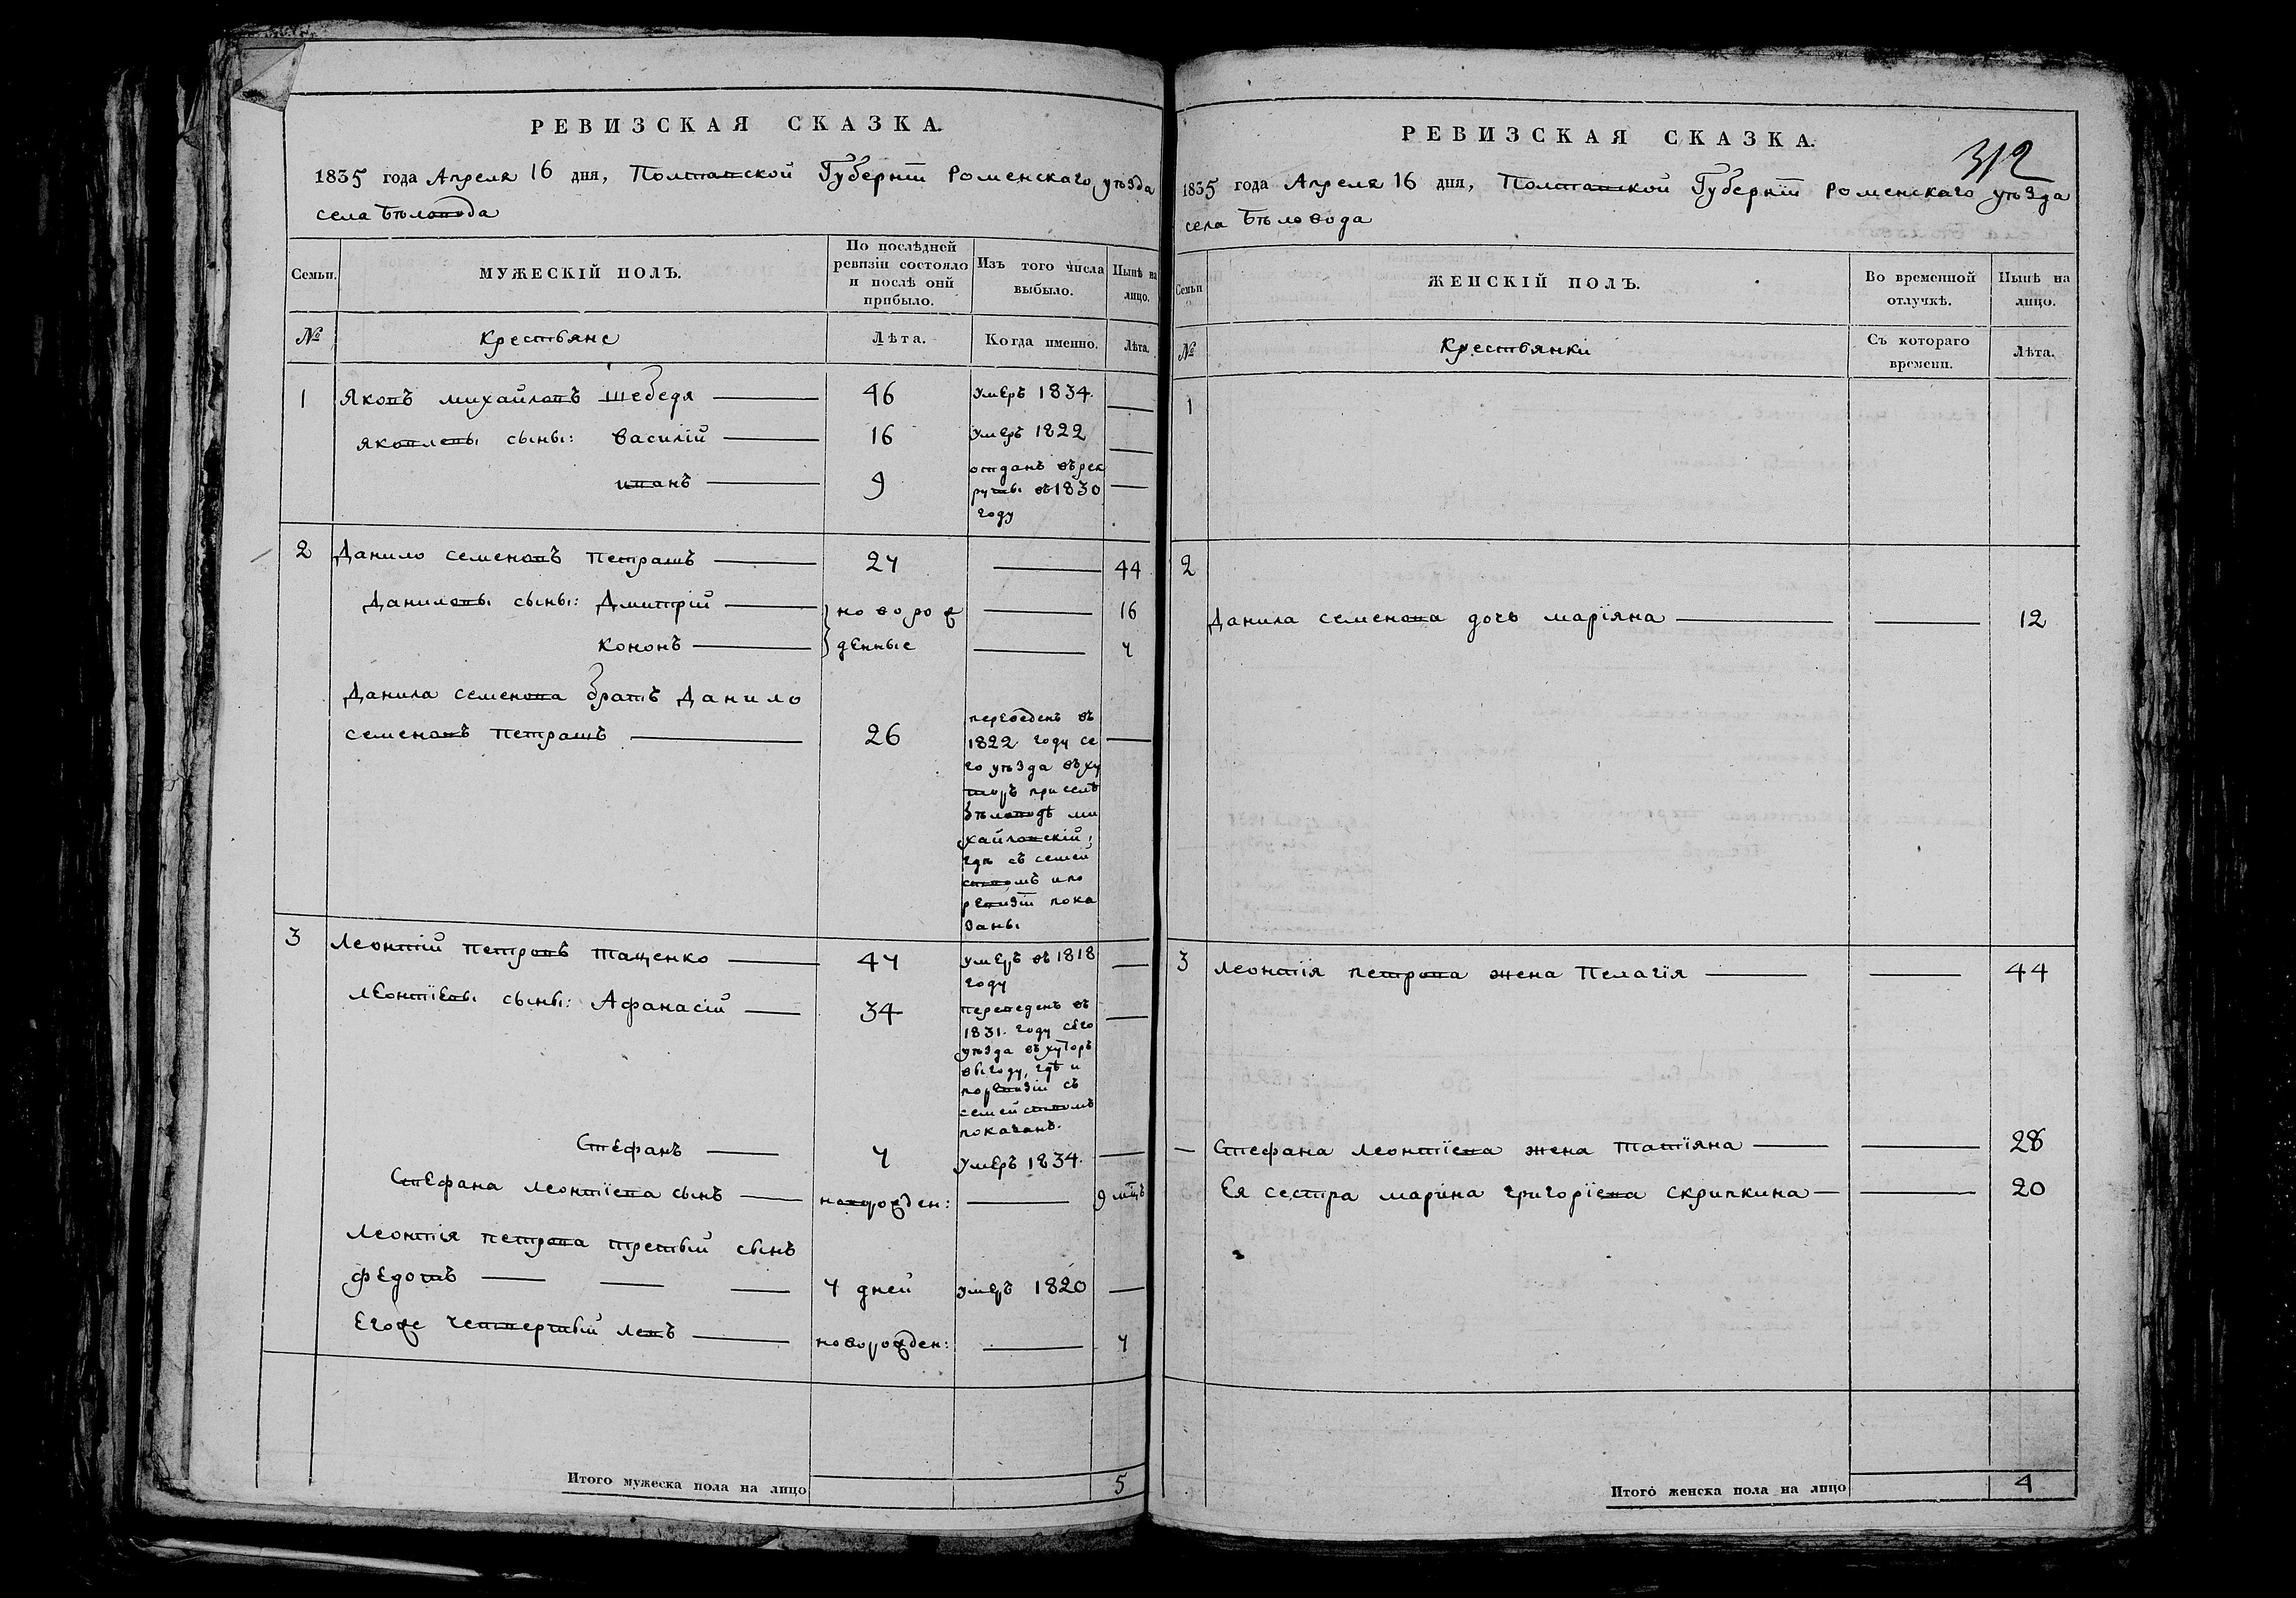 РЕВИЗСКАЯ СКАЗКА.
1835 года Апреля 16 дня, Полтавской Губерніи Роменскаго уѣзда
села Бѣловода
Семьи. МУЖЕСКІЙ ПОЛЪ. По послѣдней ревизіи состояло и послѣ оній прибыло. Изъ того числа выбыло. Нынѣ на лицо.
№ Крестьяне Лѣта. Когда именно. Лѣта.
1 Яковъ михайловъ шебедя 46 умеръ 1834.
яковлевы сыны: василій 16 умеръ 1822
иванъ 9 отданъ въ рек
руты въ 1830
году
2 Данило семеновъ петрашъ 24 44
Даниловы сыны: Дмитрій новорож 16
кононъ денные 4
Данила семенова братъ Данило
семеновъ петрашъ 26 переведенъ въ
1822 году се
го уѣзда въ ху
торъ при селѣ
Бѣловодѣ ми
хайловскій,
гдѣ съ семей
ствомъ и по
ревизіи пока
заны
3 Леонтій петровъ тащенко 44 умеръ въ 1818
году
леонтіевы сыны: Афанасій 34 переведенъ въ
1831. году сего
уѣзда въ хуторъ
выгоду, гдѣ и
по ревизіи съ
семействомъ
показанъ.
Стефанъ 4 умеръ 1834.
Стефана леонтіева сынъ новорожден: 9 мцъ
Леонтія петрова третьій сынъ
федотъ 4 дней умеръ 1820
Егоже четвертый левъ новорожден: 4
Итого мужеска пола на лицо 5
РЕВИЗСКАЯ СКАЗКА.
312
1835 года Апреля 16 дня, Полтавской Губерніи Роменскаго уѣзда
села Бѣловода
Семьи ЖЕНСКІЙ ПОЛЪ. Во временной отлучкѣ. Нынѣ на лицо.
№ Крестьянки Съ котораго времени. Лѣта.
1
2
Данила семенова дочь маріяна 12
3 леонтія петрова жена Пелагія 44
Стефана леонтіева жена татіяна 28
Ея сестра марина григоріева скрипкина 20
Итого женска пола на лицо 4